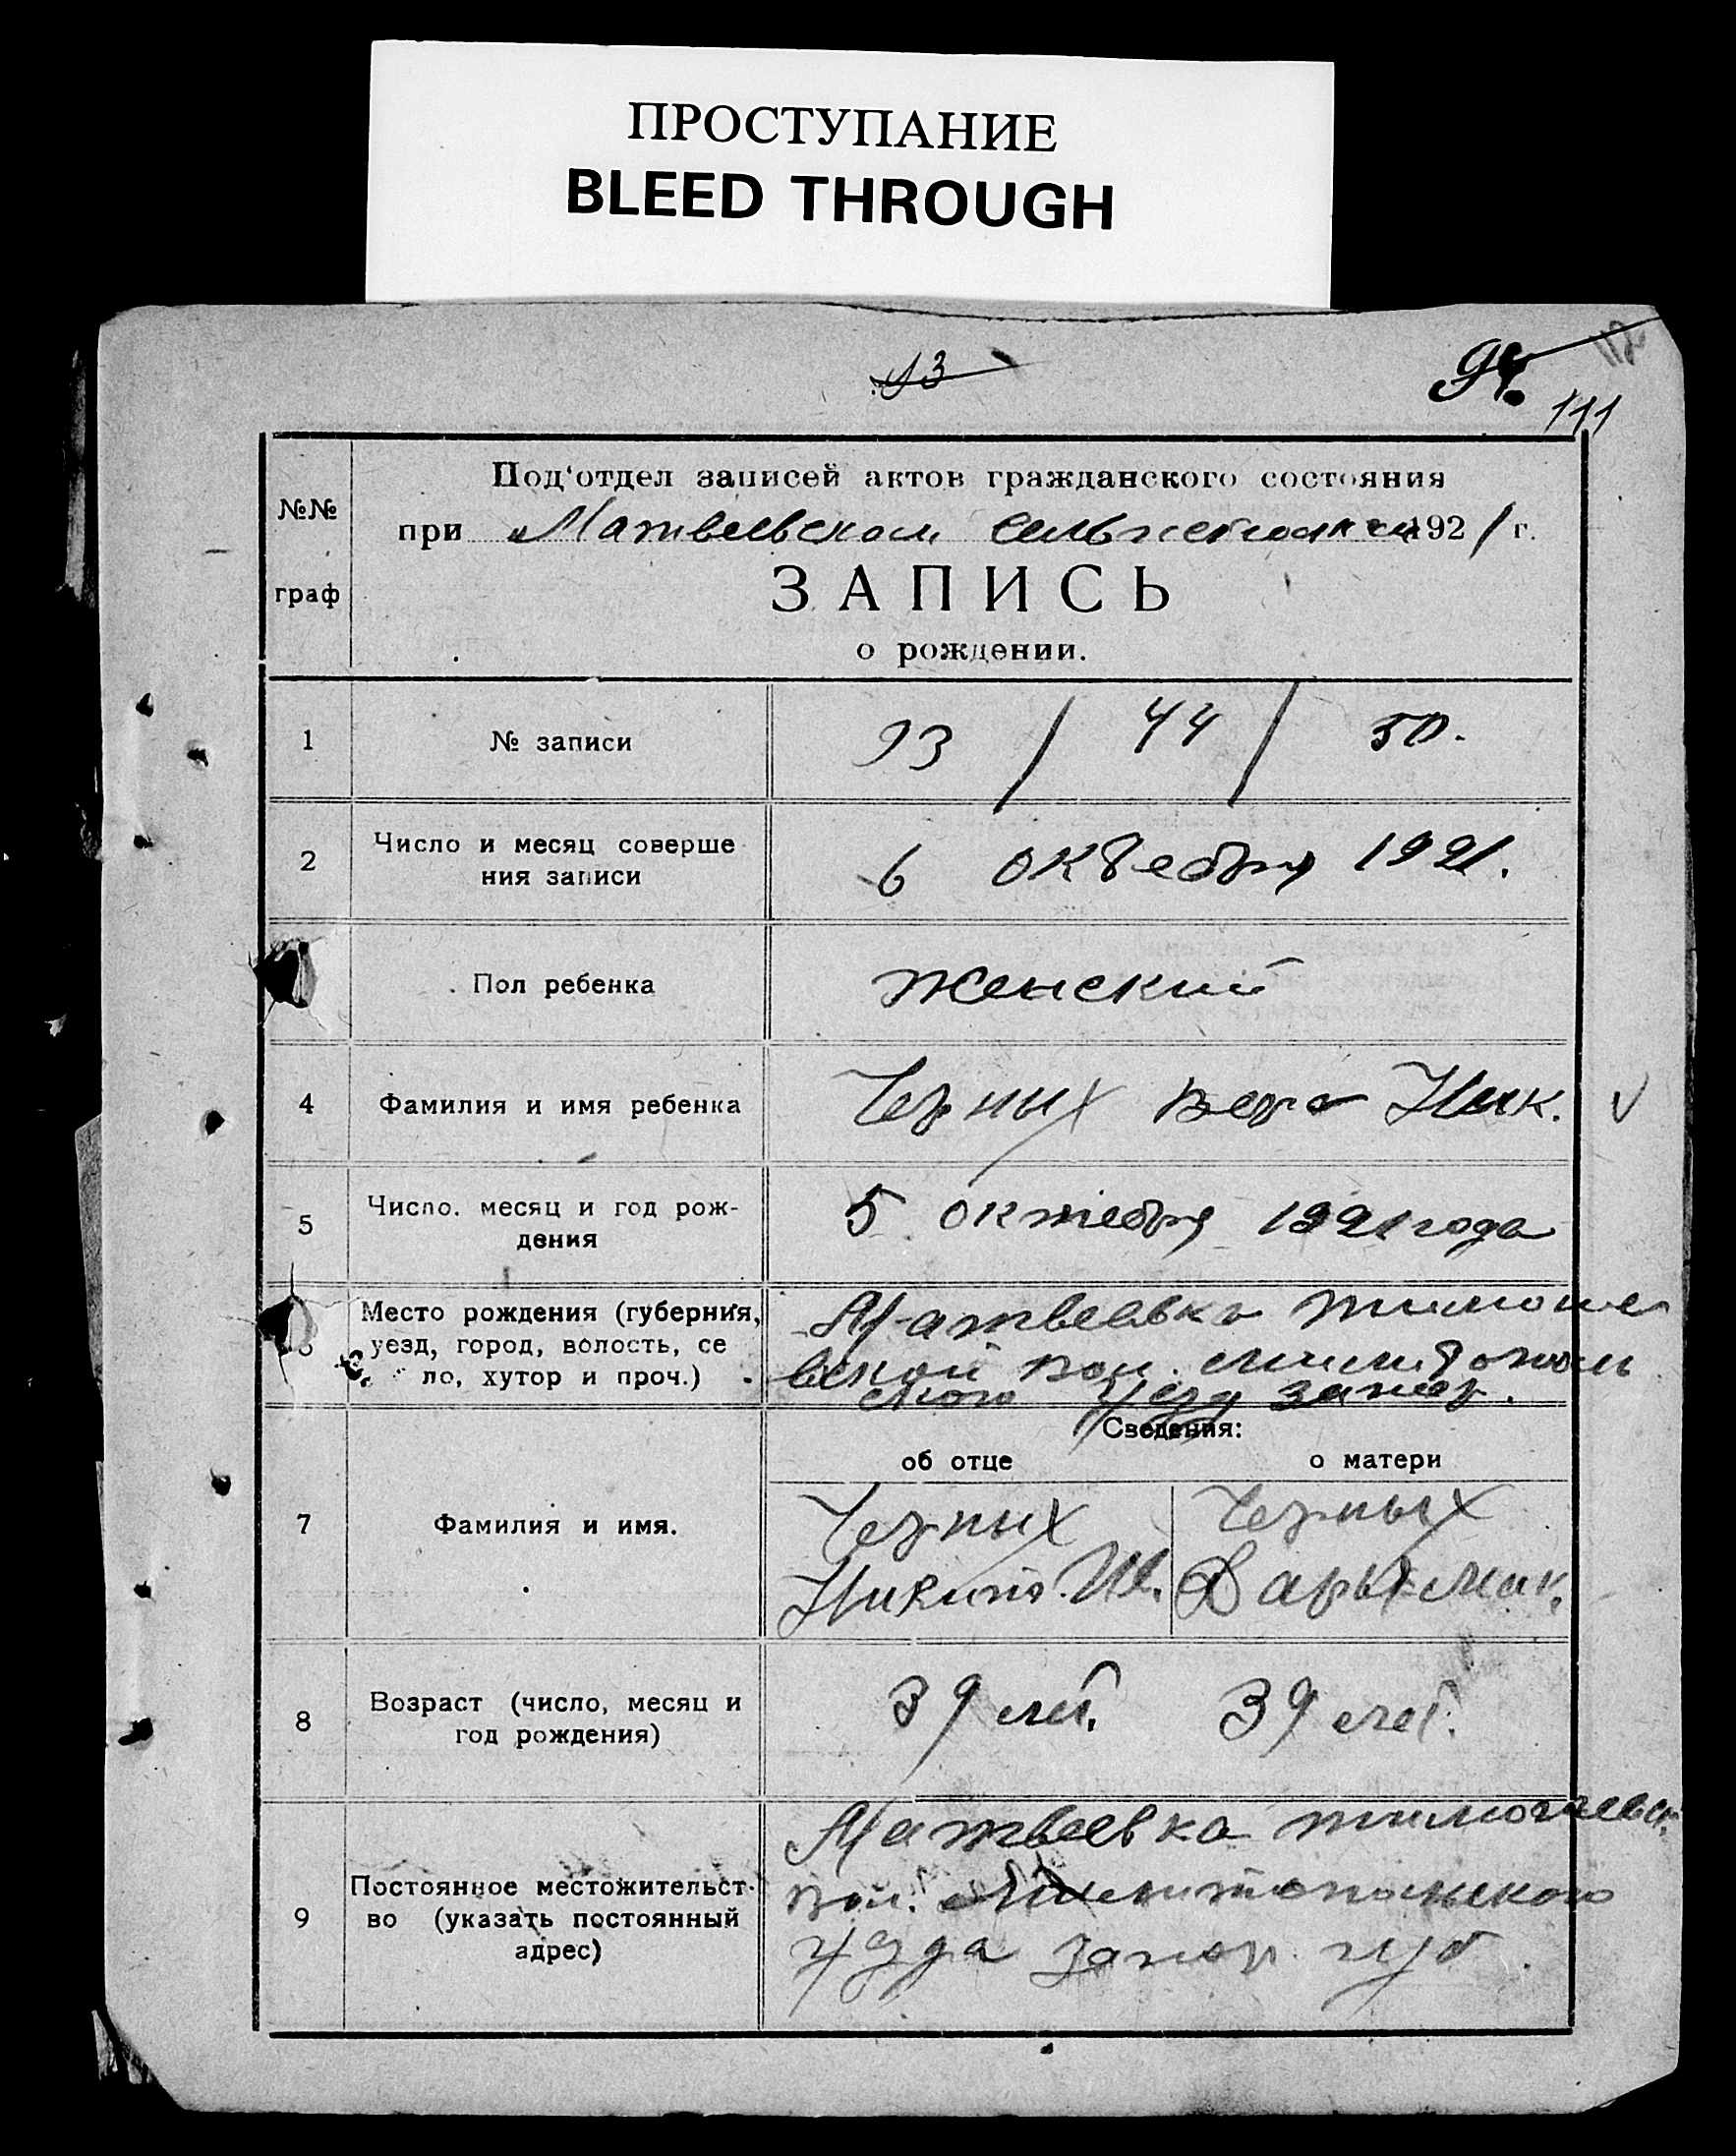 ПРОСТУПАНИЕ
BLEED THROUGH
93
94.
112
111
№№
граф
Под‘отдел записей актов гражданского состояния
при Матвеевском 1921 г.
ЗАПИСЬ
о рождении.
1 № записи 93 / 44 / 50.
2 Число и месяц соверше
ния записи
6 октебря 1921.
Пол ребенка женский
4 Фамилия и имя ребенка Черных Вера Ник. V
5 Число. месяц и год рож-
дения
5 октебря 1921 года
Место рождения (губерния,
уезд, город, волость, се
ло, хутор и проч.)
Матвеевка тимоше
вской вол. милитополь
ского уезд запор.
Сведения:
об отце о матери
7 Фамилия и имя.
Черных
Никита Ив.
Черных
Дарья Мак.
8 Возраст (число, месяц и
год рождения)
39 лет. 39 лет.
9 Постоянное местожительст-
во (указать постоянный
адрес)
Матвеевка тимошевск.
вол. милитопольского
уезда запор. губ.